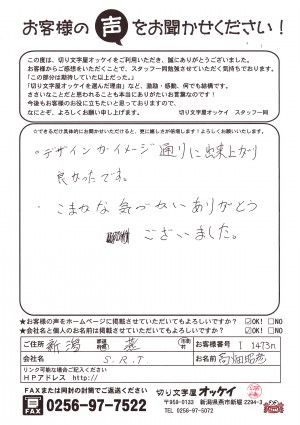 お客様の声をお聞かせください！
この度は、切り文字屋オッケイをご利用いただき、誠にありがとうございました。
お客様からご感想をいただくことで、スタッフ一同勉強させていただく気持ちでおります。
「この部分は期待していた以上だった。」
「切り文字屋オッケイを選んだ理由」など、激励・感動、何でも結構です。
ささいなことだと思われることも本当にありがたいお言葉なのです！
今後もお客様のお役に立ちたいと思っておりますので、
なにとぞ、よろしくお願い申し上げます。 切り文字屋オッケイ スタッフ一同
☆できるだけ具体的にお聞かせいただけると、更に嬉しさが倍増します！よろしくお願いいたします。
・デザインがイメージ通りに出来上がり
良かったです。
・こまかな気づかいありがとう
ございました。
★お客様の声をホームページに掲載させていただいてもよろしいですか？ ☑OK! □NO
★会社名と個人のお名前は掲載させていただいてもよろしいですか？ ☑OK! □NO
ご住所 新潟 都道府県 燕 市町村 お客様番号 I 1473n
会社名 S.R.T. お名前 高畑昭彦
リンク可能な場合ご記入ください
HPアドレス http://
FAXまたは同封の封筒でご返送ください
FAX 0256-97-7522
切り文字屋オッケイ
〒959-0133 新潟県燕市新堀 2294-3
TEL 0256-97-5072